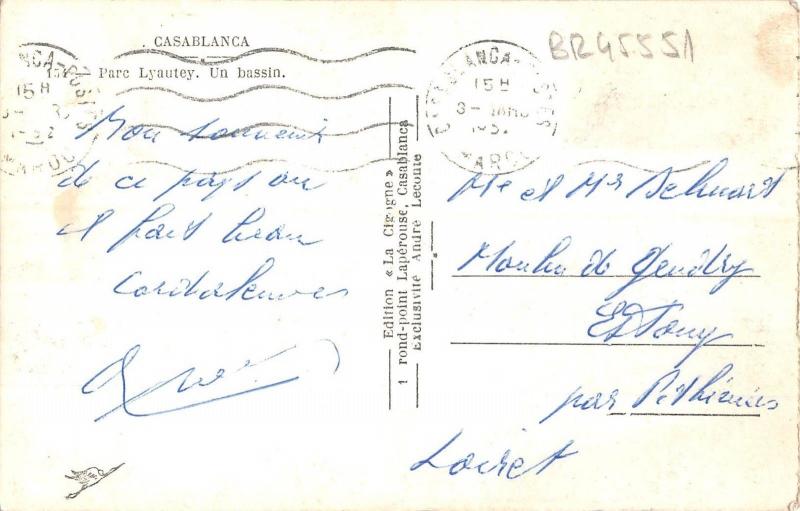 CASABLANCA
Parc Lyautey. Un bassin.
BR45551
15H
15H
Mon souvenir
de ce pays ou
il fait beau
Cordialement
Edition « La Cigogne »
1 rond-point Lapérouse, Casablanca
Exclusivité André Leconte
Me et Mr
Moulin de
par Pithiviers
Loiret